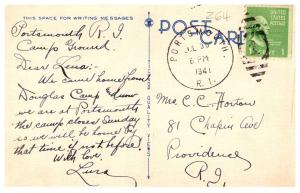 THIS SPACE FOR WRITING MESSAGES
POST CARD
264
Portsmouth R.I.
Camp Ground.
Dear Lena:
We came home from
Douglas Camp
we are at Portsmouth
the camp closes Sunday
so we will be home by
that time if not before
With love.
PORTSMOUTH
JUL 30
6 PM
1941
R.I.
1
Mrs C. C. Horton
81 Chapin Ave
Providence
R.I.